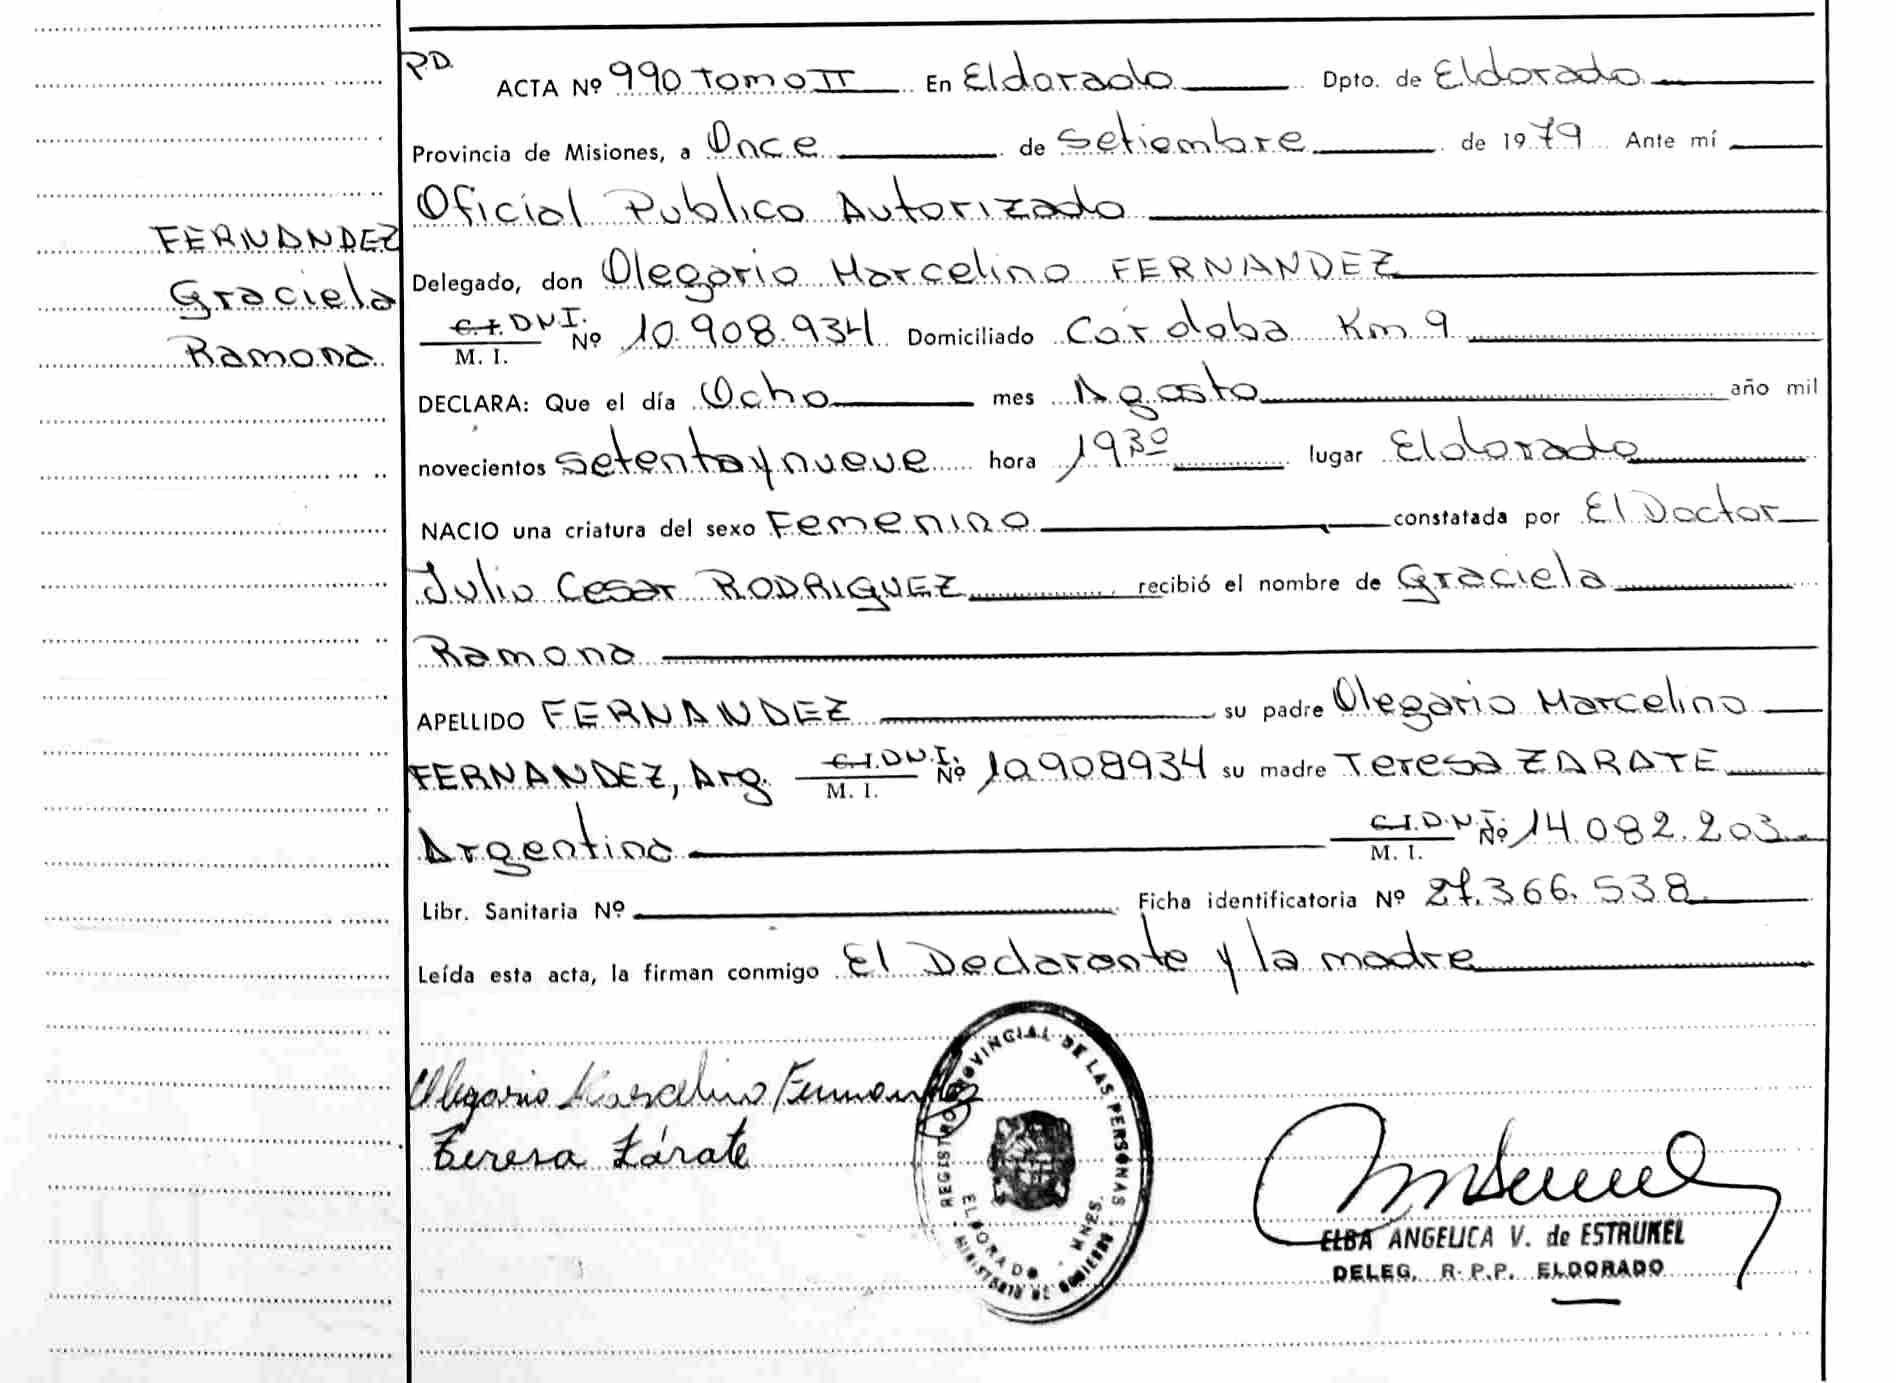 P.D.
ACTA Nº 990 Tomo II En Eldorado Dpto. de Eldorado
Provincia de Misiones, a Once de Setiembre de 1979 Ante mí
Oficial Publico Autorizado
FERNANDEZ
Graciela
Ramona
Delegado, don Olegario Marcelino FERNANDEZ
C.I. DNI. M. I. Nº 10.908.934 Domiciliado Cordoba Km. 9
DECLARA: Que el día Ocho mes Agosto año mil
novecientos setenta y nueve hora 19 30 lugar Eldorado
NACIO una criatura del sexo Femenino constatada por El Doctor
Julio Cesar RODRIGUEZ recibió el nombre de Graciela
Ramona
APELLIDO FERNANDEZ su padre Olegario Marcelino
FERNANDEZ, Arg. C.I. DNI. M. I. Nº 10908934 su madre Teresa ZARATE
Argentina C.I. D.N.I. M. I. Nº 14.082.203
Libr. Sanitaria Nº Ficha identificatoria Nº 27.366.538
Leída esta acta, la firman conmigo El Declarante y la madre
Olegario Marcelino Fernandez
Teresa Zárate
REGISTRO PROVINCIAL DE LAS PERSONAS
MINISTERIO DE GOBIERNO
ELDORADO - MNES.
ELBA ANGELICA V. de ESTRUKEL
DELEG. R.P.P. ELDORADO